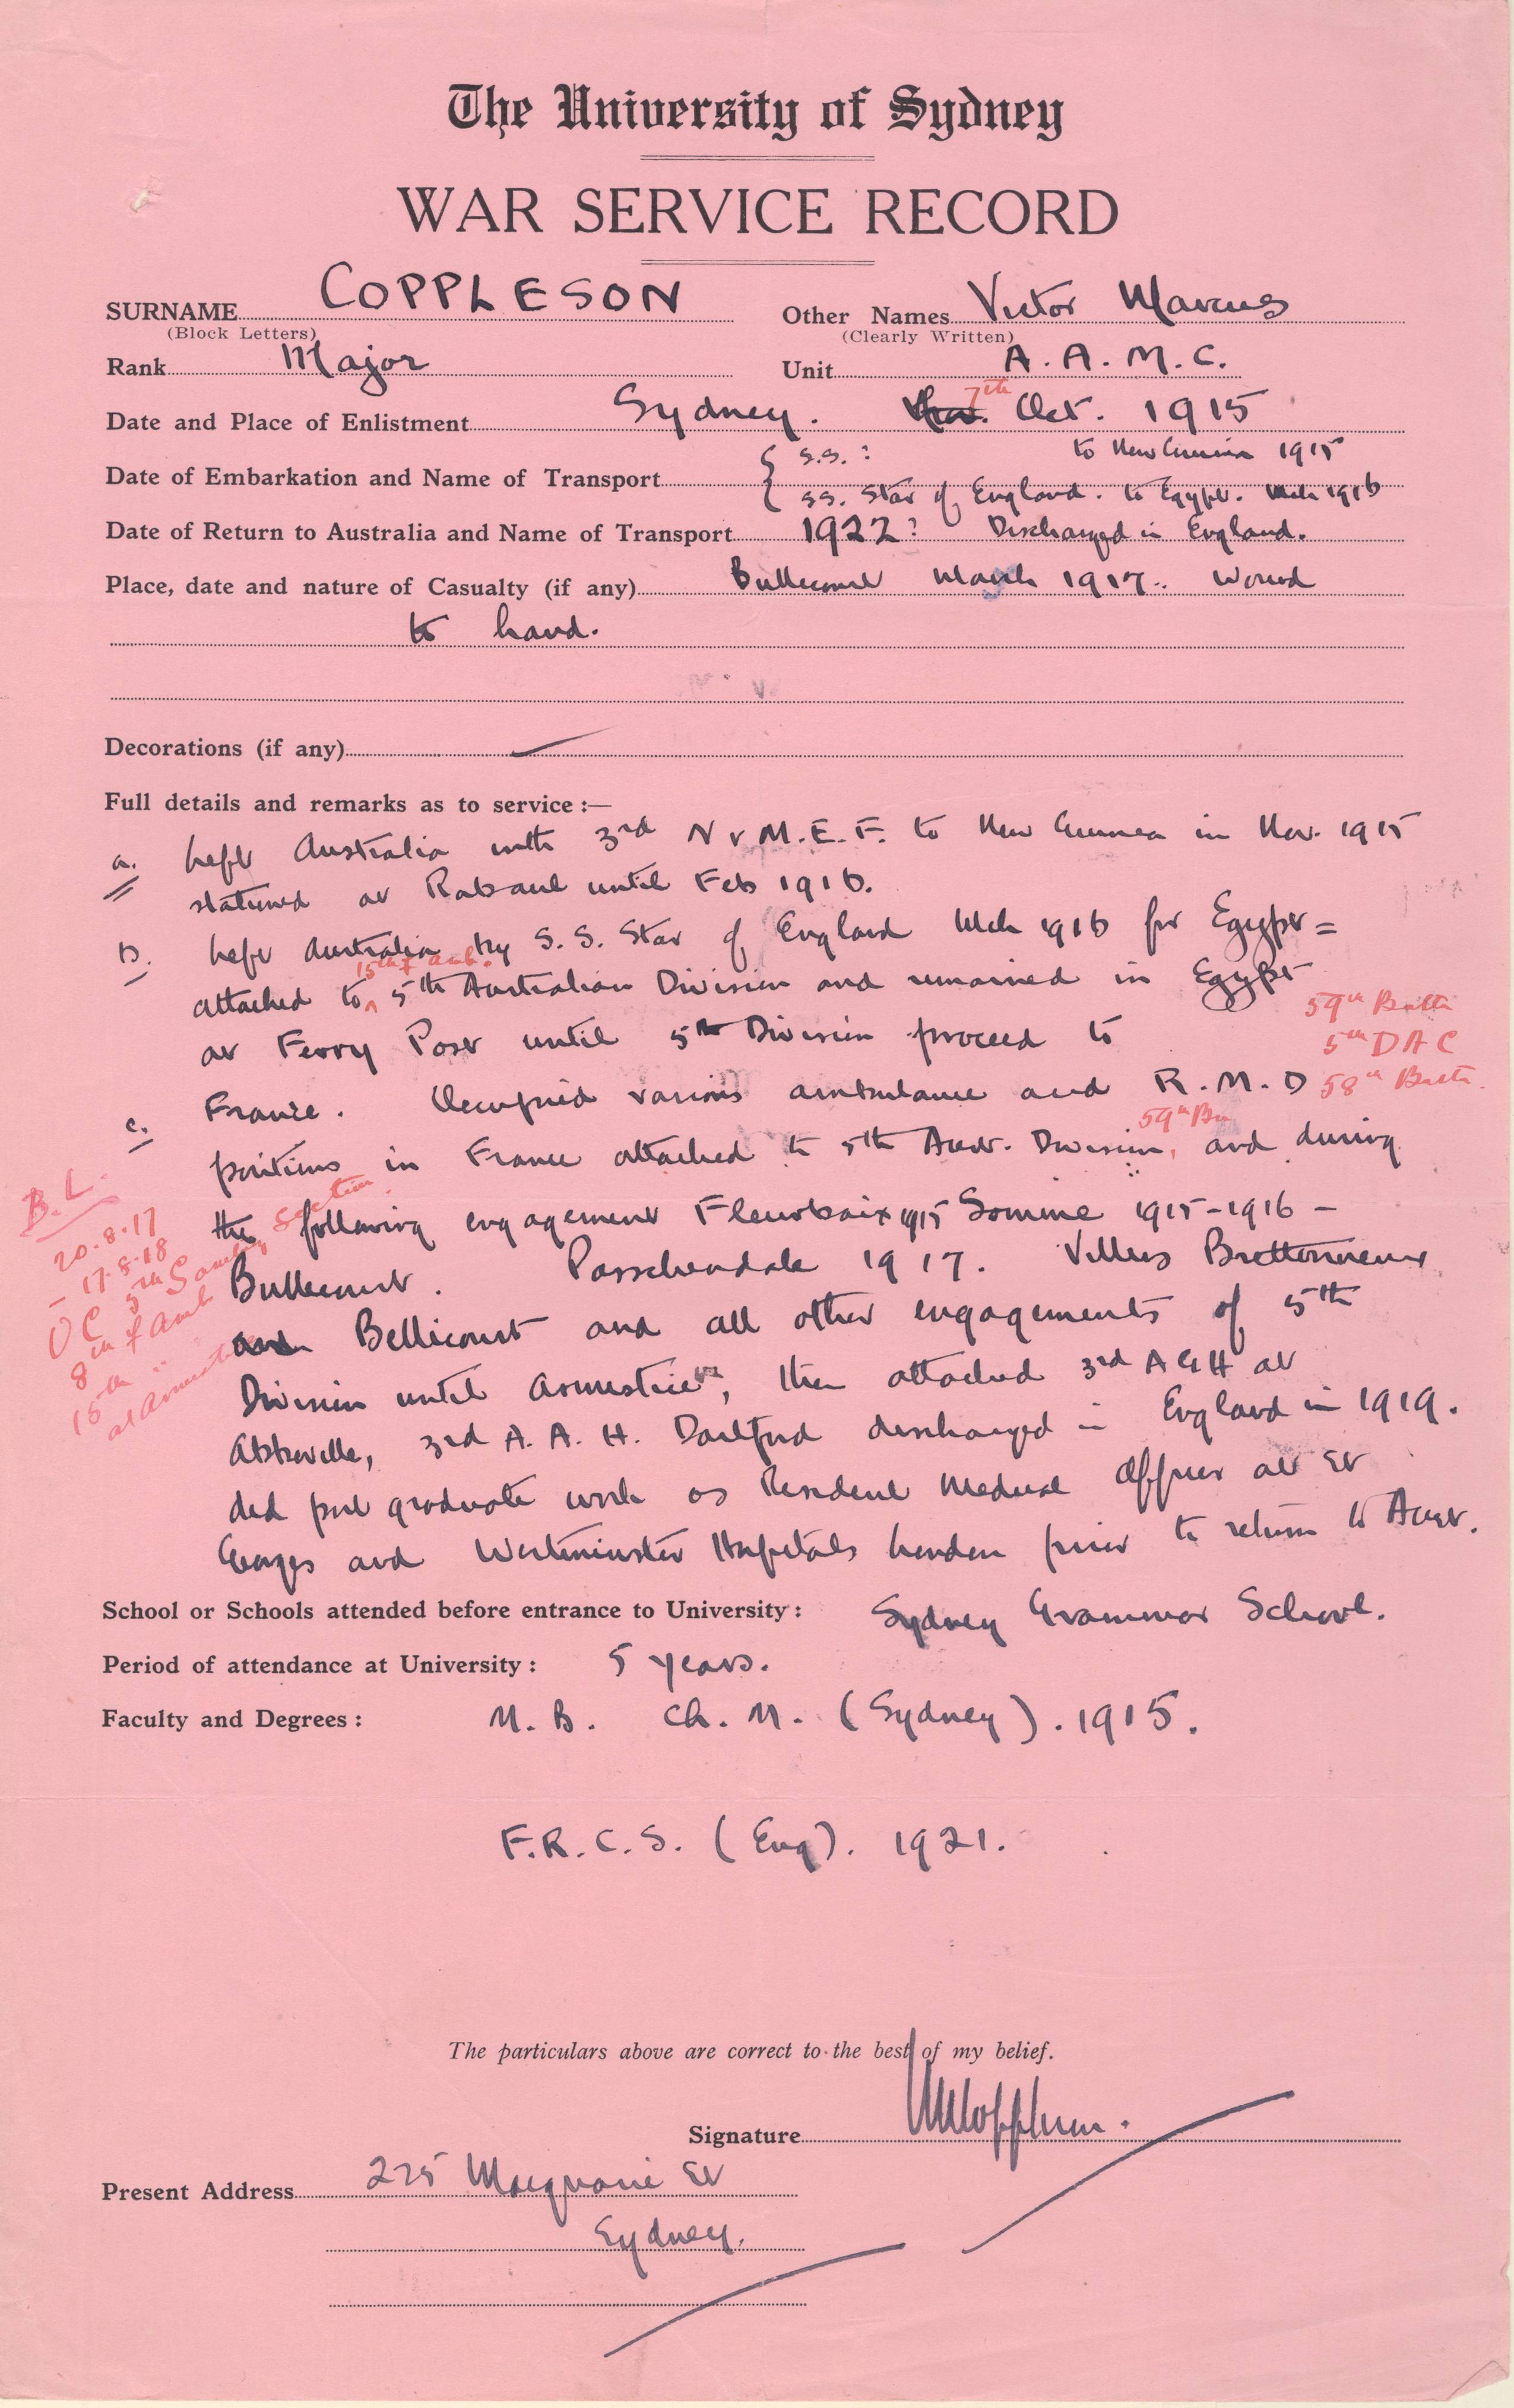 The University of Sydney
WAR SERVICE RECORD
SURNAME COPPLESON Other Names Victor Marcus
(Block Letters) (Clearly Written)
Rank Major Unit A.A.M.C.
Date and Place of Enlistment Sydney. 7th Oct. 1915
Date of Embarkation and Name of Transport { S.S. : to New Guinea 1915
SS. Star of England. to Egypt. Mch 1916
Date of Return to Australia and Name of Transport 1922? Discharged in England.
Place, date and nature of Casualty (if any) Bullecourt March 1917. Wound
to hand.
Decorations (if any)
Full details and remarks as to service :—
a. Left Australia with 3rd N v M.E.F. to New Guinea in Nov. 1915
stationed at Rabaul until Feb 1916.
b. Left Australia by S.S. Star of England Mch 1916 for Egypt =
15th f amb.
attached to 5th Australian Division and remained in Egypt
59th Battn
at Ferry Post until 5th Division proceed to
5th D A C
c. France. Occupied various ambulance and R.M.O
58th Battn.
59th Bn
positions in France attached to 5th Aust. Division, and during
the following engagement Fleurbaix 1915 Somme 1915-1916 -
Bullecourt. Passchendale 1917. Villers Brettonneux
and Bellicourt and all other engagements of 5th
Division until armistice, then attached 3rd A G H at
Abbeville, 3rd A.A.H. Dartford discharged in England in 1919.
did post graduate work as Resident Medical Officer at St
Georges and Westminster Hospitals London prior to return to Aust.
B.L.
20.8.17
- 17.8.18
OC 5th Sanitary Section
8th f Amb
15th "
at Armistice
School or Schools attended before entrance to University : Sydney Grammar School.
Period of attendance at University : 5 years.
Faculty and Degrees : M.B. Ch.M. (Sydney). 1915.
F.R.C.S. (Eng). 1921.
The particulars above are correct to the best of my belief.
Signature VMCoppleson.
Present Address 225 Macquarie St
Sydney.